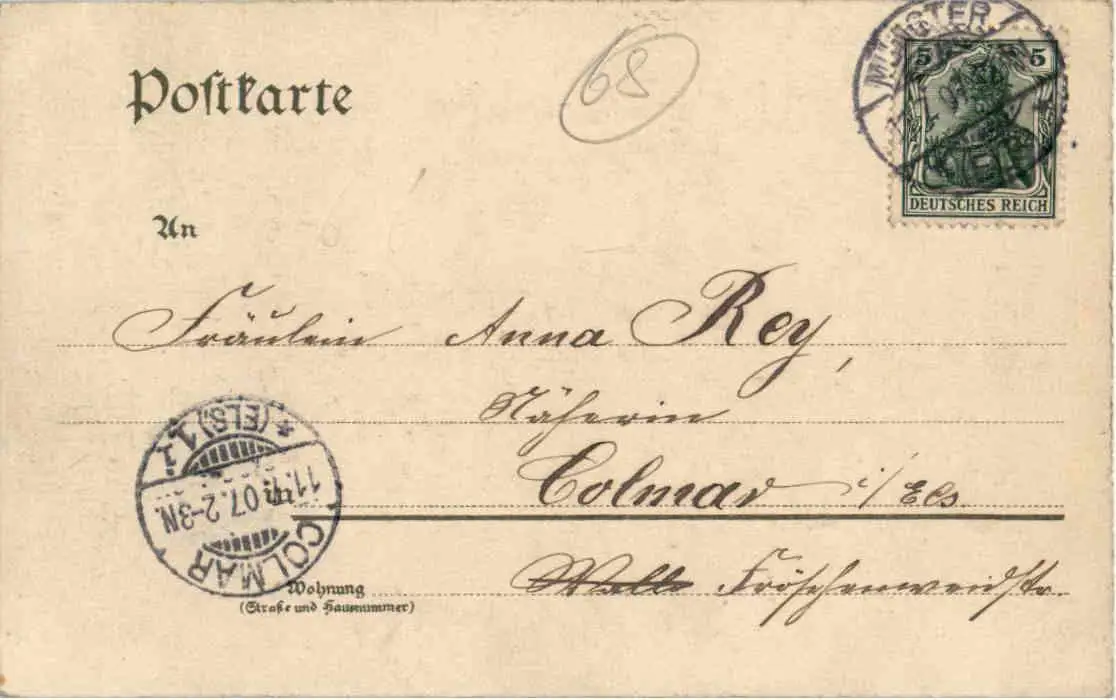 Postkarte
68
MÜNSTER
5 5
DEUTSCHES REICH
An
Fräulein Anna Rey,
Näherin
Colmar i/Els.
in
COLMAR
11. 07. 2-3N.
* (ELS.) 1 j.
Wohnung
(Straße und Hausnummer)
Fröschenweidstr.